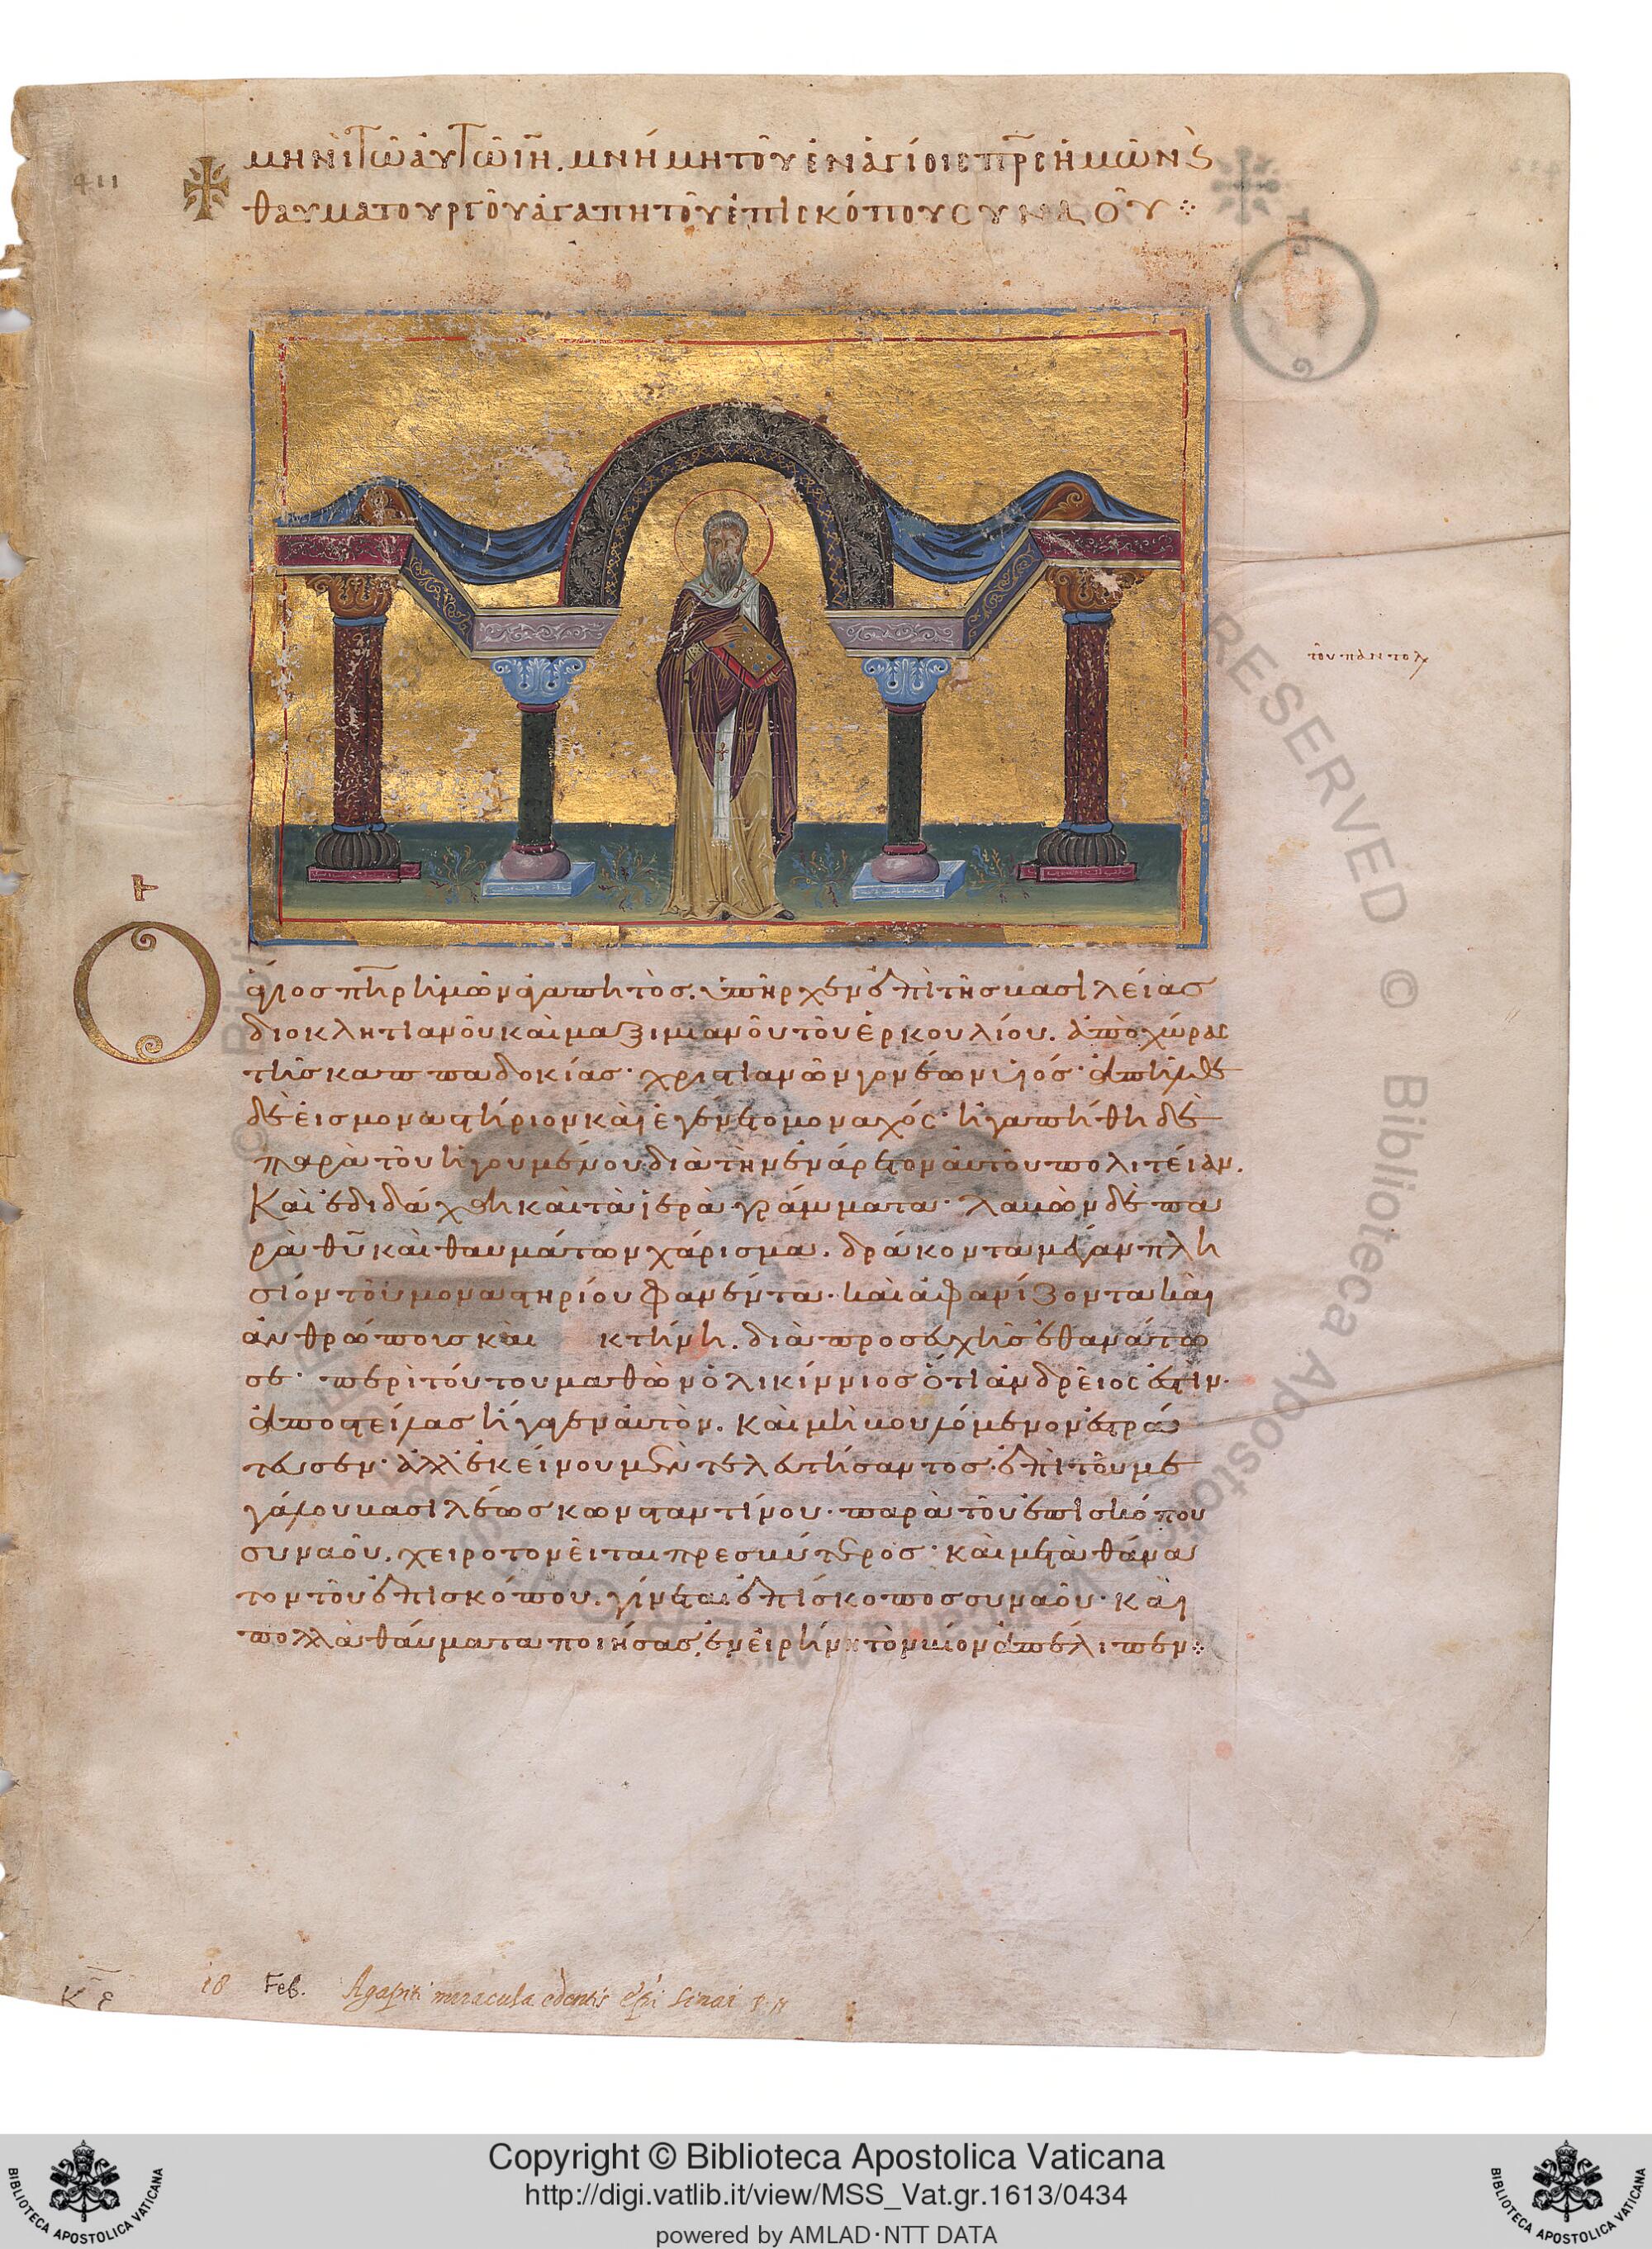 411
μηνὶ τῶ αὐτῶ ιη. μνήμη τοῦ ἐν ἁγίοις πρς ἡμῶν ϛ
θαυματουργοῦ ἀγαπητοῦ ἐπισκόπου συναοῦ
τοῦ παντολ
Ο
ἅγιος πηρ ἡμῶν ἀγαπητὸς. ὑπῆρχεν ἐπὶ τῆς βασιλείας
διοκλητιανοῦ καὶ μαξιμιανοῦ τοῦ ἑρκουλίου. ἀπὸ χώρας
τῆς καππαδοκίας· χριστιανῶν γονέων υἱός· ἀπῆλθε
δὲ εἰς μοναστήριον καὶ ἐγένετο μοναχός· ἠγαπήθη δὲ
παρὰ τοῦ ἡγουμένου διὰ τὴν ἐνάρετον αὐτοῦ πολιτείαν.
Καὶ ἐδιδάχθη καὶ τὰ ἱερὰ γράμματα· λαβὼν δὲ πα
ρὰ θυ καὶ θαυμάτων χάρισμα. δράκοντα μέγαν πλη
σίον τοῦ μοναστηρίου φανέντα· καὶ ἀφανίζοντα καὶ
ἀνθρώποις καὶ κτήνη. διὰ προσευχῆς ἐθανάτω
σε· περὶ τούτου μαθὼν ὁ λικίννιος ὅτι ἀνδρεῖός ἐστιν·
ἀποστείλας ἤγαγεν αὐτὸν. καὶ μὴ βουλόμενον ἐστρά
τευσεν· ἀλλ' ἐκείνου μὲν τελευτήσαντος· ἐπὶ τοῦ με
γάλου βασιλέως κωνσταντίνου· παρὰ τοῦ ἐπισκόπου
συναοῦ. χειροτονεῖται πρεσβύτερος· καὶ μετὰ θάνα
τον τοῦ ἐπισκόπου. γίνεται ἐπίσκοπος συναοῦ· καὶ
πολλὰ θαύματα ποιήσας, ἐν εἰρήνη τὸν βίον ἀπέλιπεν
κε
18 Feb. Agapiti miracula edentis epi Sinai
Copyright © Biblioteca Apostolica Vaticana
http://digi.vatlib.it/view/MSS_Vat.gr.1613/0434
powered by AMLAD·NTT DATA
BIBLIOTECA APOSTOLICA VATICANA
BIBLIOTECA APOSTOLICA VATICANA